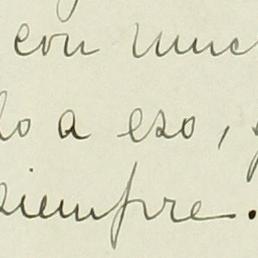 con muc
do a eso,
siempre.